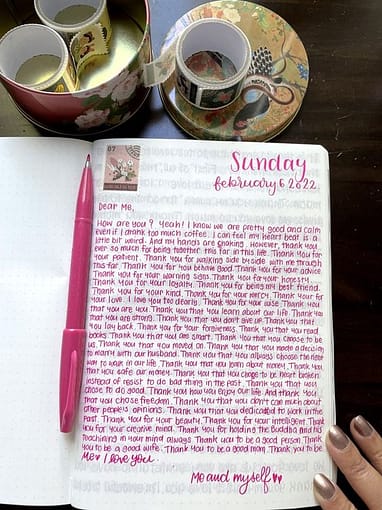 07
Sunday
february 6 2022
Dear Me,
How are you? Yeah! I know we are pretty good and calm
even if I drank too much coffee. I can feel my heart beat is a
little bit weird. And my hands are shaking. However, thank you
ever so much for being together this far in this life. Thank you for
your patient. Thank you for walking side by side with me through
this far. Thank you for you behave good. Thank you for your advice.
Thank you for your warning signs. Thank you for your honesty.
Thank you for your loyalty. Thank you for being my best friend.
Thank you for your kind. Thank you for your mercy. Thank your for
your love. I love you too dearly. Thank you for your wise. Thank you
that you are you. Thank you that you learn about our life. Thank you
that you are strong. Thank you that you don't give up. Thank you that
you lay back. Thank you for your forgiveness. Thank you that you read
books. Thank you that you are smart. Thank you that you choose to be
us. Thank you that you moved on. Thank you that you made a decision
to marry with our husband. Thank you that you always choose the right
way to walk in our life. Thank you that you learn about money. Thank you
that you safe our money. Thank you that you chose to be heart broken
instead of resist to do bad thing in the past. Thank you that you
chose to do good. Thank you how you enjoy our life. And thank you
that you chose freedom. Thank you that you don't care much about
other people's opinions. Thank you that you dedicated to work in the
past. Thank you for your beauty. Thank you for your intelligent. Thank you
for your creative mind. Thank you for holding the Buddha and his
teachining in your mind always. Thank you to be a good person. Thank
you to be a good wife. Thank you to be a good mom. Thank you to be
Me♥ I love you.
Me and myself♥